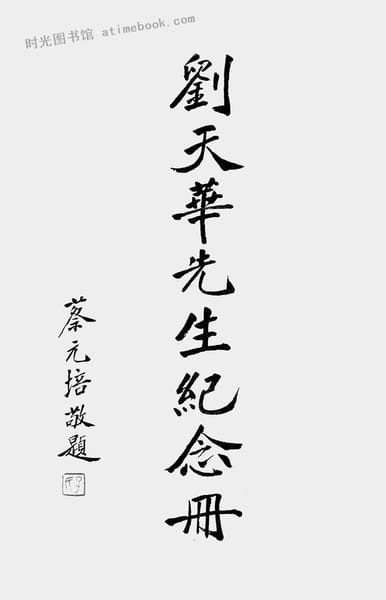 时光图书馆 atimebook.com
劉天華先生紀念冊
蔡元培敬題